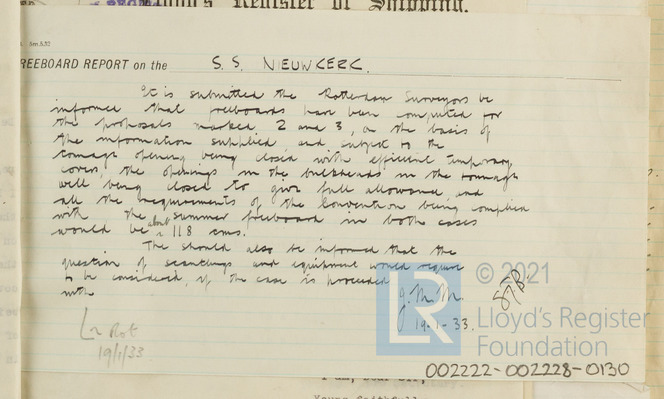 Register of Shipping.
REEBOARD REPORT on the S.S. NIEUWKERK.
It is submitted the Rotterdam Surveyors be
informed that freeboards have been computed for
the proposals marked 2 and 3, on the basis of
the information supplied, and subject to the
tonnage opening being closed with efficient temporary
covers, the openings in the bulkheads in the tonnage
well being closed to give full allowance, and
all the requirements of the Convention being complied
with the summer freeboard in both cases
would be about 118 cms.
The should also be informed that the
question of scantlings and equipment would require
to be considered, if the case is proceeded
with
19-1-33.
Lr Rot
19/1/33
© 2021
LR
Lloyd's Register
Foundation
002222-002228-0130